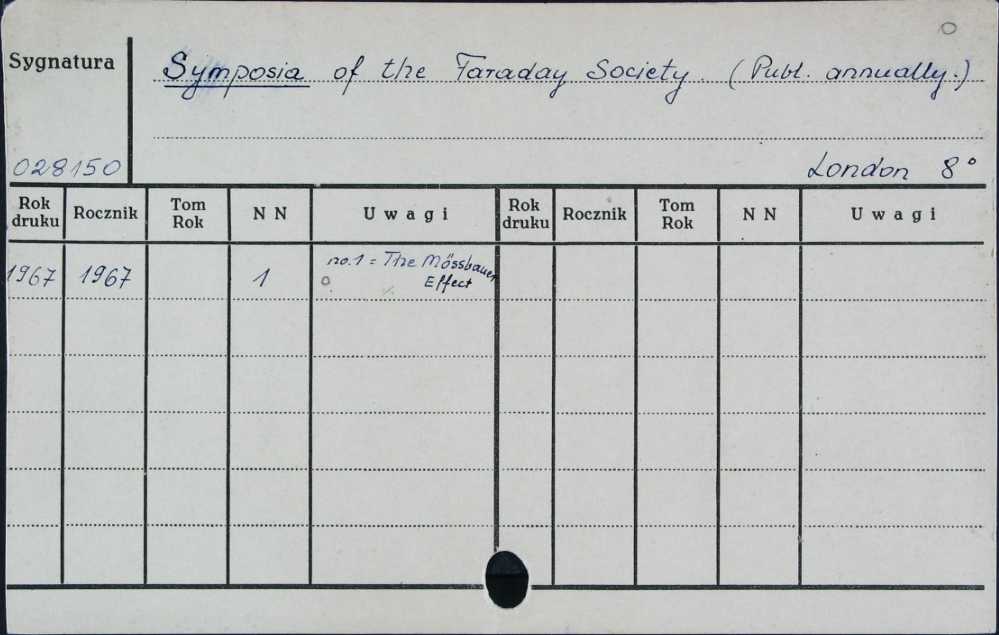 Sygnatura
Symposia of the Faraday Society. (Publ. annually.)
028150
London 8°
Rok druku Rocznik Tom Rok N N Uwagi Rok druku Rocznik Tom Rok N N Uwagi
1967 1967 1 no.1 = The Mössbauer
Effect